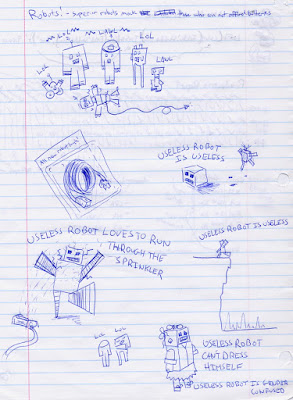 ROBOTS! - superior robots mock those who can not afford batteries
LOL
LAWL
LOL
LOL
LAWL
USELESS ROBOT
IS USELESS
USELESS ROBOT IS USELESS
USELESS ROBOT LOVES TO RUN
THROUGH THE
SPRINKLER
LOL
LOL
USELESS ROBOT
CAN'T DRESS
HIMSELF
USELESS ROBOT IS GENDER
CONFUSED